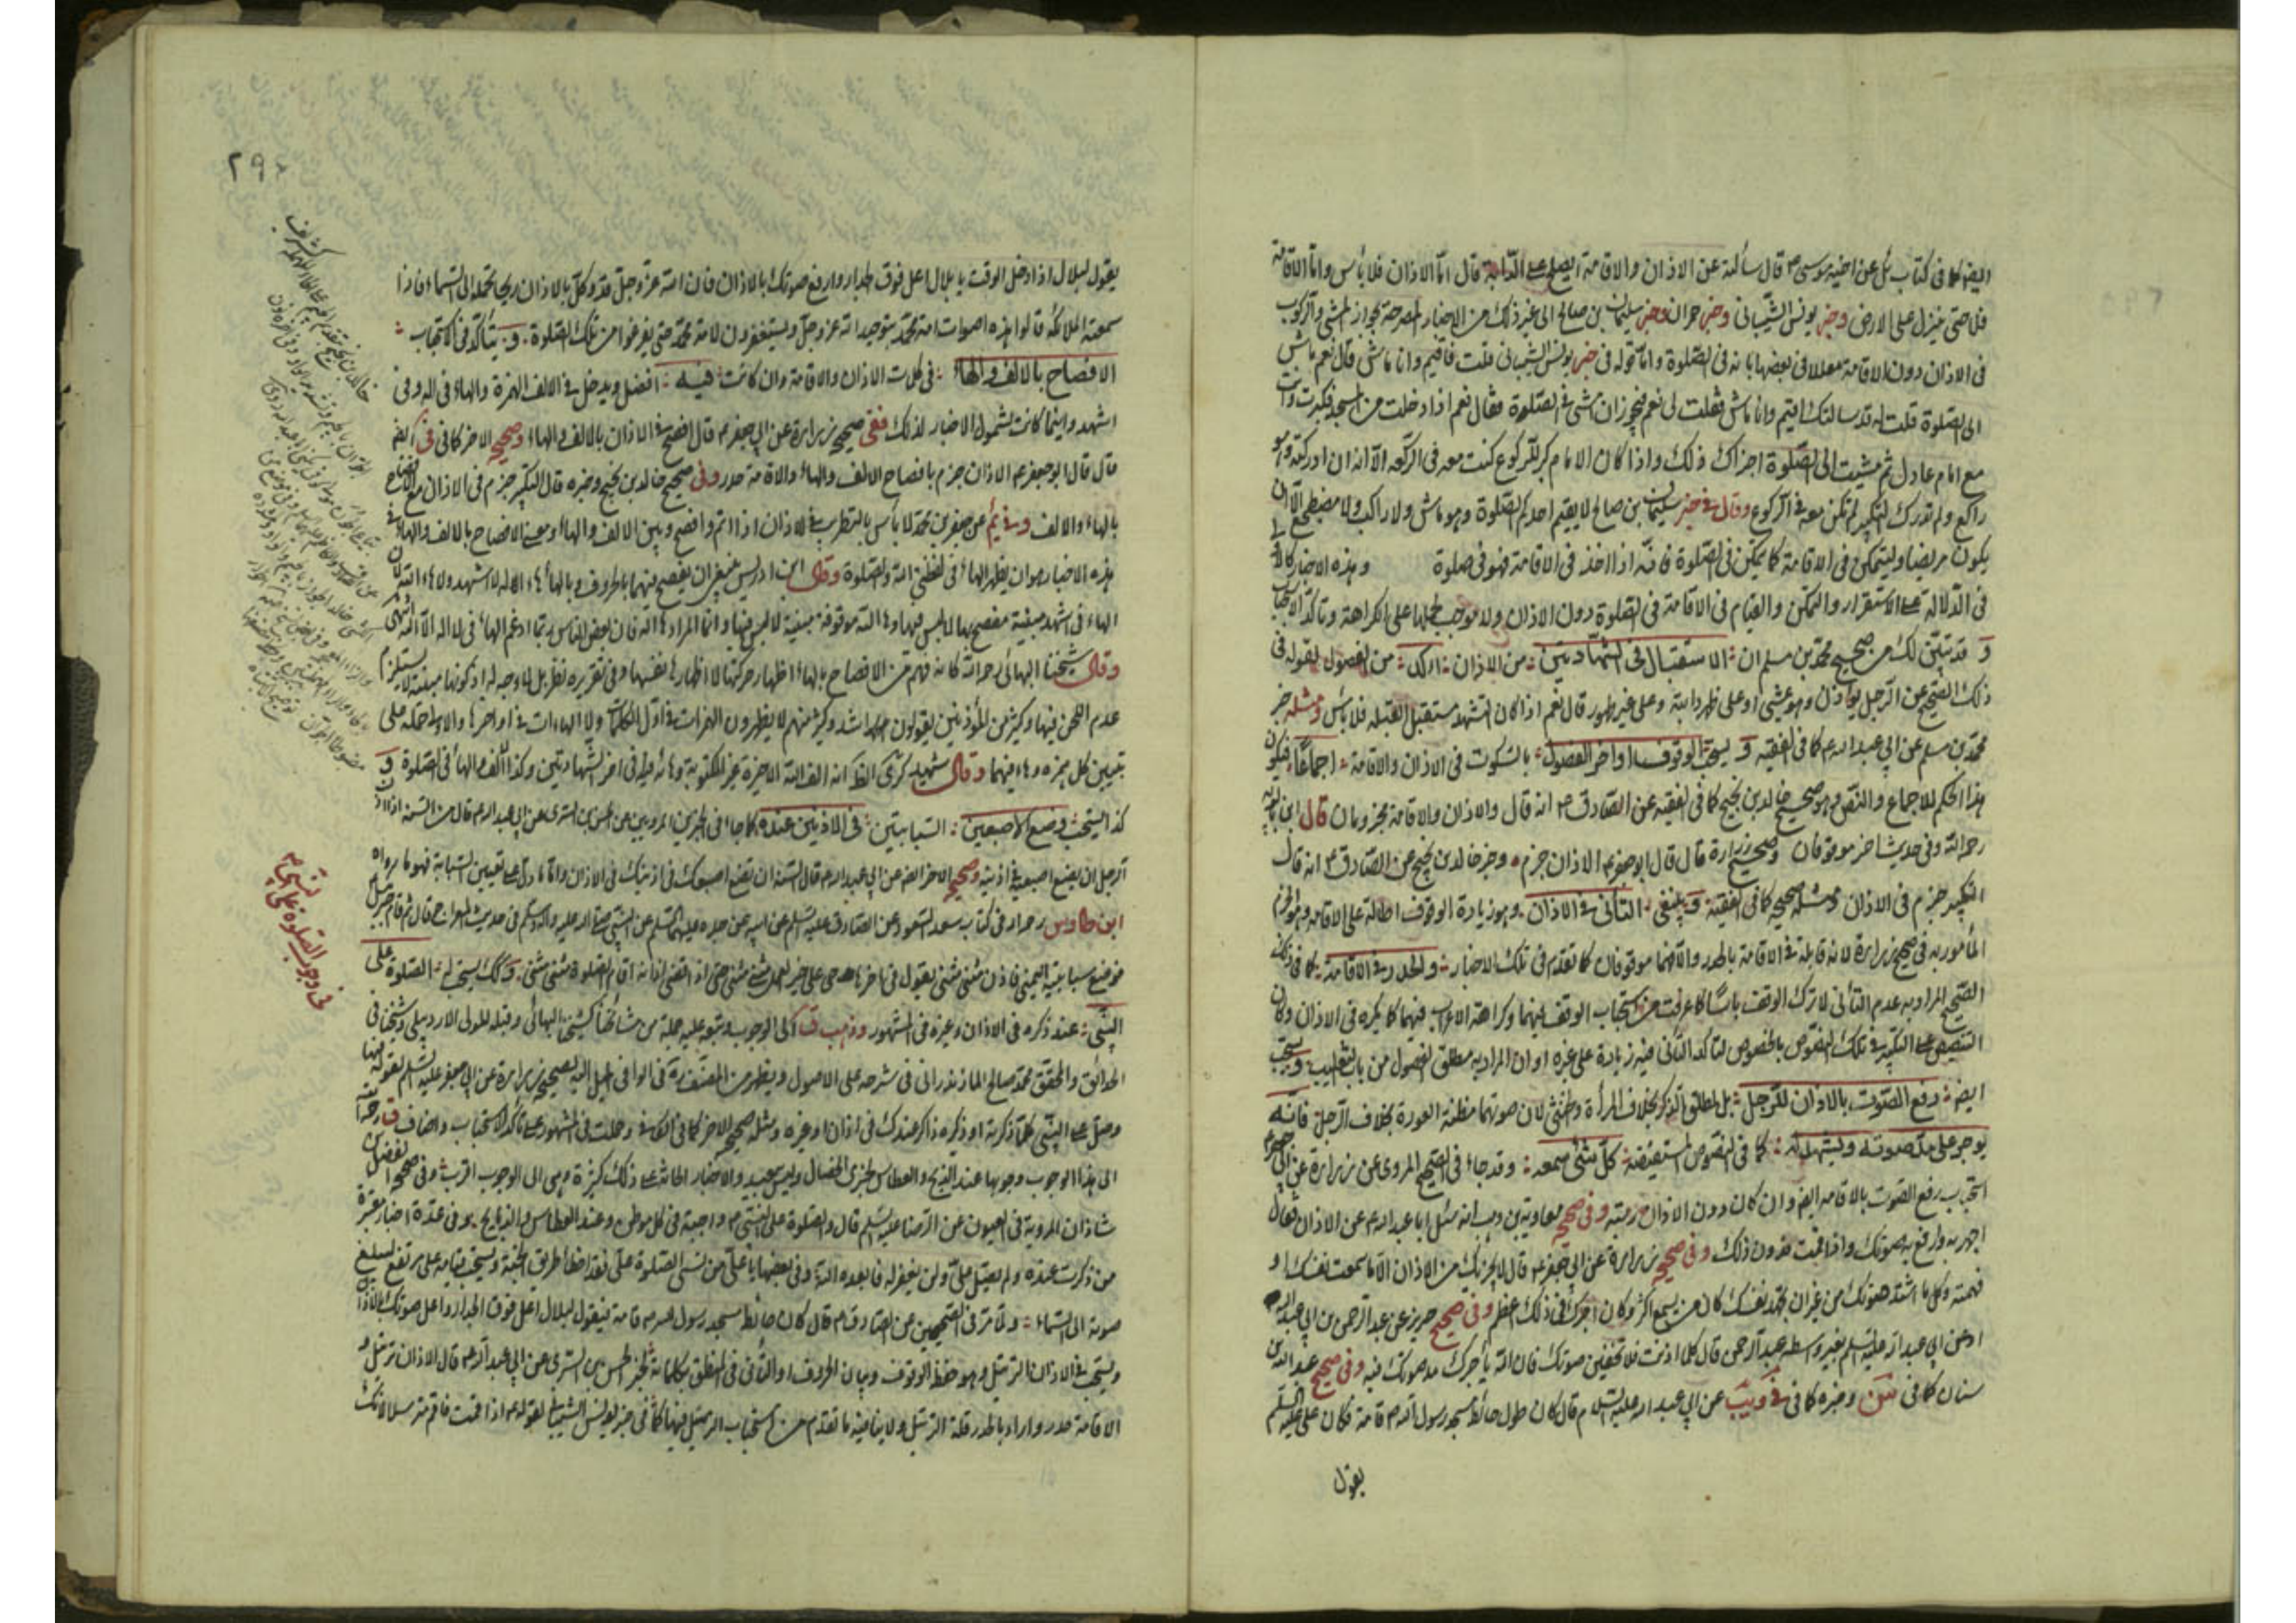 ايضا كما في كتاب علي عن اخيه موسى ع قال سألته عن الاذان والاقامة ايصلح على الدابة قال اما الاذان فلا بأس واما الاقامة
فلا حتى ينزل على الارض وخبر يونس الشيباني وخبر حمران وخبر سليمان بن صالح الى غير ذلك من الاخبار المصرحة بجواز المشي والركوب
في الاذان دون الاقامة معللا في بعضها بانه في الصلوة واما قوله في خبر يونس الشيباني قلت فاقيم وانا ماشي قال نعم ماش
الى الصلوة قلت له قد سالتك اقيم وانا ماش فقلت لي نعم فيجوز ان امشي في الصلوة فقال نعم اذا دخلت من المسجد فكبرت وانت
مع امام عادل ثم مشيت الى الصلوة اجزاك ذلك واذا كان الامام كبر للركوع كنت معه في الركعة الا انه ان ادركته وهو
راكع ولم تدرك التكبير لم تكن معه في الركوع وقال في خبر سليمان بن صالح لا يقيم احدكم الصلوة وهو ماش ولا راكب ولا مضطجع الا ان
يكون مريضا وليتمكن في الاقامة كما يتمكن في الصلوة فانه اذا اخذ في الاقامة فهو في صلوة وهذه الاخبار كالا
في الدلالة على الاستقرار والتمكن والقيام في الاقامة في الصلوة دون الاذان ولا موجب لحملها على الكراهة وتأكد الاستحباب
و قد تبين لك من صحيح محمد بن مسلم ان الاستقبال في الشهادتين من الاذان اكد من الفصول لقوله في
ذلك الصحيح عن الرجل يؤذن وهو يمشي او على ظهر دابته وعلى غير طهور قال نعم اذا كان التشهد مستقبل القبلة فلا بأس ومثله خبر
محمد بن مسلم عن ابي عبد الله ع كما في الفقيه و يستحب الوقوف اواخر الفصول بالسكوت في الاذان والاقامة اجماعا فيكون
هذا الحكم للاجماع والنص وهو صحيح خالد بن نجيح كما في الفقيه عن الصادق ع انه قال والاذان والاقامة مجزومان قال ابن بابويه
رحمه الله وفي حديث اخر موقوفان وصحيح زرارة قال قال ابو جعفر ع الاذان جزم وخبر خالد بن نجيح عن الصادق ع انه قال
التكبير جزم في الاذان ومثله صحيحه كما في الفقيه و ينبغي التأني في الاذان وهو زيادة الوقوف اطالة على الاقامة وهو الجزم
المأمور به في صحيح زرارة لانه قابله في الاقامة بالحدر والا فهما موقوفان كما تقدم في تلك الاخبار والحدر في الاقامة كما في ذلك
الصحيح المراد به عدم التأني لا ترك الوقف باسا كما عرفت من استحباب الوقف فيهما وكراهة الاعراب فيهما كما يكره في الاذان وكان
التنصيص على التكبير في تلك النصوص بالخصوص لتاكد التأني فيه زيادة على غيره او ان المراد به مطلق الفصول من باب التغليب ويستحب
ايضا رفع الصوت بالاذان للرجل بل لمطلق الذكر بخلاف المرأة والخنثى لان صوتهما مظنة العورة بخلاف الرجل فانه
يوجر على مد صوته ويشهد له كما في النصوص المستفيضة كل شئ سمعه وقد جاء في الصحيح المروي عن زرارة عن ابي جعفر ع
استحباب رفع الصوت بالاقامة ايضا وان كان دون الاذان رتبة وفي صحيح معاوية بن وهب انه سئل ابا عبد الله ع عن الاذان فقال
اجهر به وارفع به صوتك واذا اقمت فدون ذلك وفي صحيح زرارة عن ابي جعفر ع قال لا يجزيك من الاذان الا ما سمعت نفسك او
فهمته وكلما اشتد صوتك من غير ان تجهد نفسك كان من يسمع اكثر وكان اجرك في ذلك اعظم وفي صحيح حريز عن عبد الرحمن بن ابي عبد الله
او عن ابي عبد الله عليه السلم بغير واسطه عبد الرحمن قال كلما اذنت فلا تخفين صوتك فان الله يأجرك مد صوتك فيه وفي صحيح عبد الله بن
سنان كما في سن وخبره كما في في ويب عن ابي عبد الله عليه السلام قال كان طول حائط مسجد رسول الله ص قامة فكان على عليه السلم
يقول
٢٩
يقول لبلال اذا دخل الوقت يا بلال اعل فوق الجدار وارفع صوتك بالاذان فان الله عز وجل قد وكل بالاذان ريحا تحمله الى السماء فاذا
سمعته الملائكة قالوا هذه اصوات امة محمد بتوحيد الله عز وجل ويستغفرون لامة محمد حتى يفرغوا من تلك الصلوة و يتأكد في الاستحباب
الافصاح بالالف والهاء في كلمات الاذان والاقامة وان كانت فيه افضل ويدخل في الالف الهمزة والهاء في اله وفي
اشهد واينما كانت لشمول الاخبار لذلك ففي صحيح زرارة عن ابي جعفر ع قال افصح في الاذان بالالف والهاء وصحيحه الاخر كما في في ايضا
قال قال ابو جعفر ع الاذان جزم بافصاح الالف والهاء والاقامة حدر وفي صحيح خالد بن نجيح وخبره قال التكبير جزم في الاذان مع الافصاح
بالهاء والالف وفي عن جعفر بن محمد لا بأس بالتطريب في الاذان اذا اتم وافصح وبين الالف والهاء ومعنى الافصاح بالالف والهاء في
هذه الاخبار هو ان يظهر الهاء في لفظتي الله والصلوة وقال ابن ادريس ينبغي ان يفصح فيهما بالحروف وبالهاء هاء اله لا اشهد ولا هاء الله لان
الهاء في اشهد مبينة مفصح بها لا لبس فيها وهاء الله موقوفة مبينة لا لبس فيها وانما المراد هاء اله فان بعض الناس ربما ادغم الهاء في لا اله الا الله انتهى
وقال شيخنا البهائي رحمه الله كانه فهم من الافصاح بالهاء اظهار حركتها لا اظهارها نفسها وفي تقريره نظر بل لا وجه له اذ كونها مبينة لا يستلزم
عدم اللحن فيها وكثير من المؤذنين يقولون اشد وكثير منهم لا يظهرون الهمزات في اول الكلمات ولا الهاءات في اواخرها والاولى حمله على
تبيين كل همزة وهاء فيهما وقال شهيد كرى الظ انه الف الله الاخيرة غير المكتوبة وهائه في اخر الشهادتين وكذا الف والهاء في الصلوة و
كذا يستحب وضع الاصبعين السبابتين في الاذنين عنده كما جاء في الخبرين المرويين عن الحسن بن السري عن ابي عبد الله ع قال من السنة اذا اذن
الرجل ان يضع اصبعيه في اذنيه وصحيحه الاخر ايضا عن ابي عبد الله ع قال السنة ان تضع اصبعيك في اذنيك في الاذان واما ما دل على تعيين السبابة فهو ما رواه
ابن طاوس رحمه الله في كتاب سعد السعود عن الصادق عليه السلم عن ابيه عن جده عليهما السلم عن النبي صلى الله عليه واله وسلم في حديث المعراج قال ثم قام جبرئيل
فوضع سبابته اليمنى فاذن مثنى مثنى يقول في اخرها حي على خير العمل مثنى مثنى حتى اذا انقضى اذانه اقام الصلوة مثنى مثنى وكك يستحب الصلوة على
النبي عند ذكره في الاذان وغيره في المشهور وذهب ق الى الوجوب وتبعه عليه جملة من مشائخنا كشيخنا البهائي وقبله للمولى الاردبيلي وشيخنا في
الحدائق والمحقق محمد صالح المازندراني في شرحه على الاصول ويظهر من المصنف ره في الوافي الميل اليه لصحيح زرارة عن ابي جعفر عليه السلم لقوله فيها
وصل على النبي كلما ذكرته او ذكره ذاكر عندك في اذان او غيره ومثله صحيحه الاخر كما في الكافي وحملت في المشهور على تأكد الاستحباب واضاف ق رحمه الله
الى هذا الوجوب وجوبها عند الذبح والعطاس لخبري الخصال وليس ببعيد والاخبار الحاثة على ذلك كثيرة وهي الى الوجوب اقرب وفي صحيح الفضل بن
شاذان المروية في العيون عن الرضا عليه السلم قال والصلوة على النبي ص واجبة في كل موطن وعند العطاس والذبايح وفي عدة اخبار معتبرة
من ذكرت عنده ولم يصل علي ولن يغفر له فابعده الله وفي بعضها يا علي من نسى الصلوة علي فقد اخطأ طريق الجنة ويستحب قيامه على مرتفع ليبلغ
صوته الى السماء ولما مر في الصحيحين عن الصادق ع قال كان حائط مسجد رسول الله ص قامة فيقول لبلال اعل فوق الجدار واعل صوتك بالاذان
ويستحب في الاذان الترتيل وهو حفظ الوقوف وبيان الحروف او التأني في النطق بكلماته لخبر الحسن بن السري عن ابي عبد الله ع قال الاذان ترتيل و
الاقامة حدر واراد بالحدر قلة الترتيل ولا ينافيه ما تقدم من استحباب الترتيل فيها كما في خبر يونس الشيباني لقوله ع اذا اقمت فاقم مترسلا فانك
في وجوب الصلوة على النبي ص